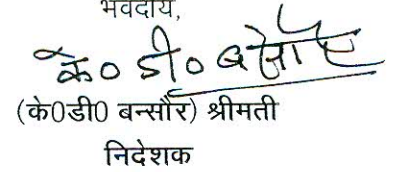 भवदीय,
के० डी० बन्सौर
(के0डी0 बन्सौर) श्रीमती
निदेशक